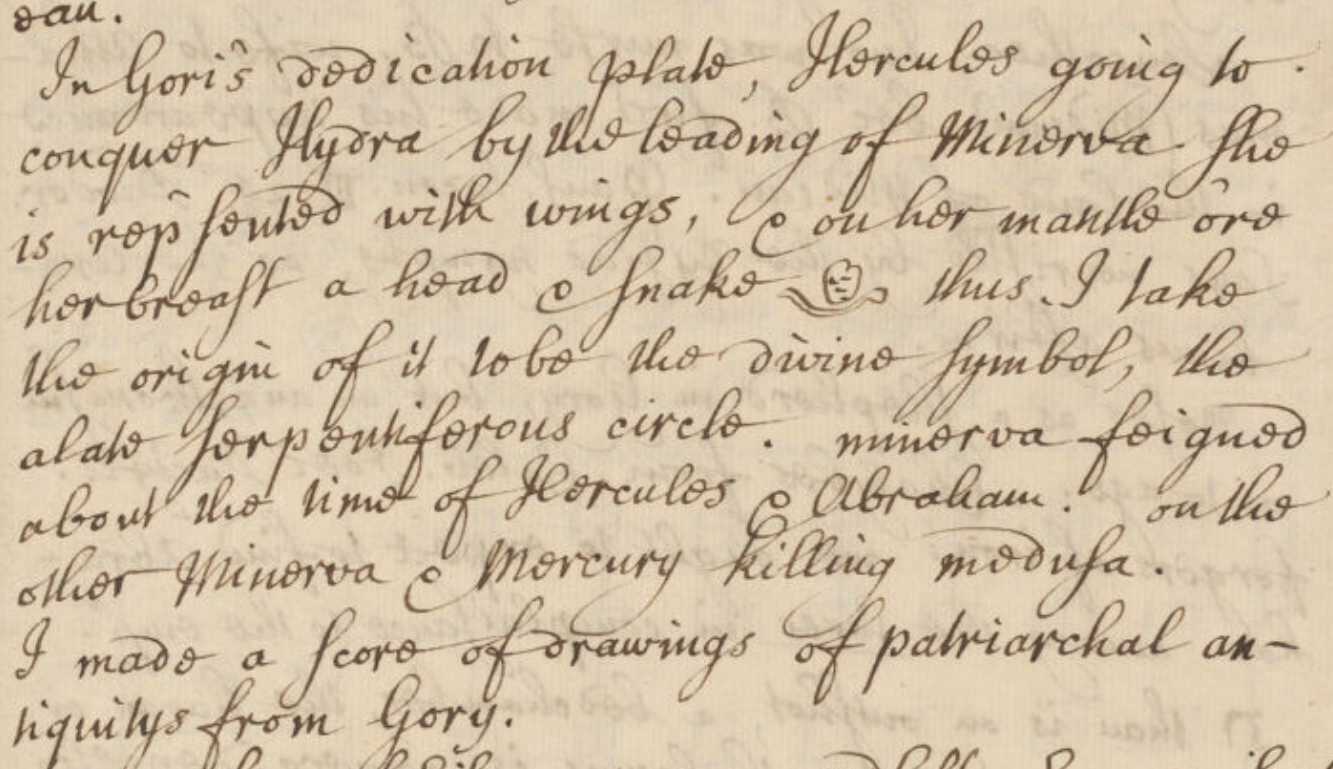 ean.
In Gori's dedication plate, Hercules going to
conquer Hydra by the leading of Minerva. she
is rep̄sented with wings, & on her mantle o're
her breast a head & snake thus. I take
the origin of it to be the divine symbol, the
alate serpentiferous circle. minerva feigned
about the time of Hercules & Abraham. on the
other Minerva & Mercury killing medusa.
I made a score of drawings of patriarchal an-
tiquitys from Gory.